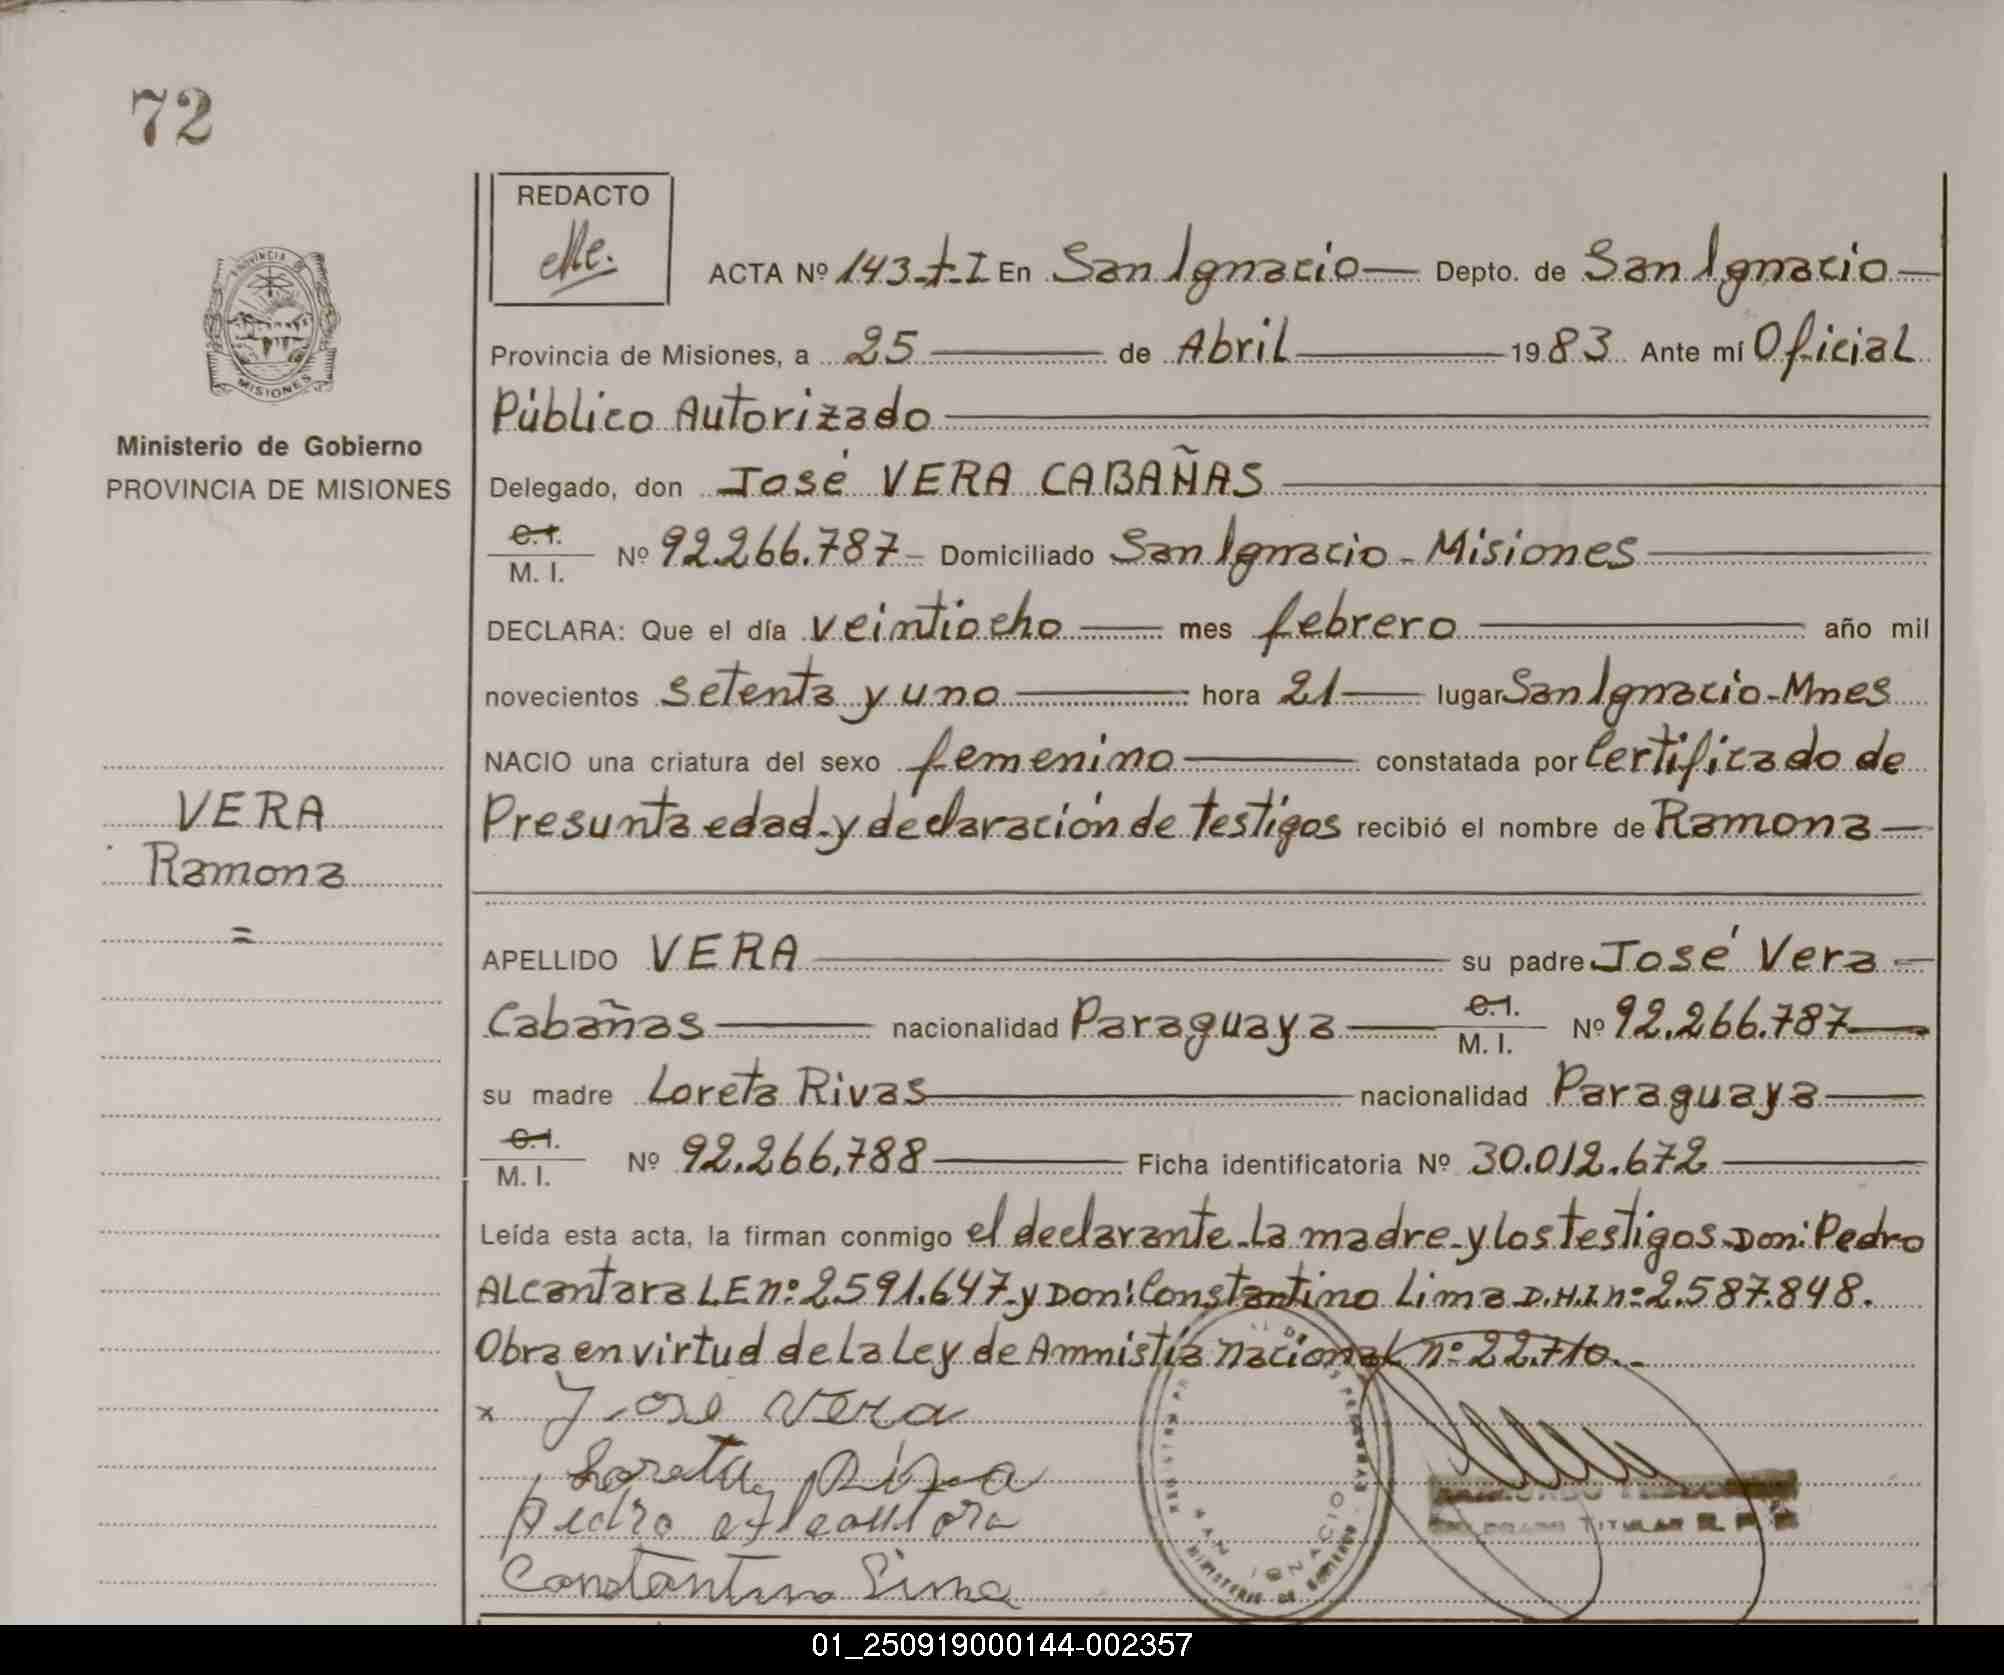 72
REDACTO
ACTA Nº 143-t-I En San Ignacio Depto. de San Ignacio
PROVINCIA DE
MISIONES
Provincia de Misiones, a 25 de Abril 1983. Ante mí Oficial
Público Autorizado
Ministerio de Gobierno
PROVINCIA DE MISIONES
Delegado, don José VERA CABAÑAS
C.I.
M. I. Nº 92.266.787- Domiciliado San Ignacio - Misiones
DECLARA: Que el día veintiocho mes febrero año mil
novecientos setenta y uno hora 21 lugar San Ignacio-Mnes
NACIO una criatura del sexo femenino constatada por Certificado de
Presunta edad-y declaración de testigos recibió el nombre de Ramona
VERA
Ramona
=
APELLIDO VERA su padre José Vera
Cabañas nacionalidad Paraguaya C.I. M. I. Nº 92.266.787
su madre Loreta Rivas nacionalidad Paraguaya
C.I.
M. I. Nº 92.266.788 Ficha identificatoria Nº 30.012.672
Leída esta acta, la firman conmigo el declarante-la madre-y los testigos-Don: Pedro
Alcantara LE nº: 2591.647-y Don: Constantino Lima D.N.I. nº: 2.587.848.
Obra en virtud de la Ley de Ammistía nacional nº 22.710.-
x José Vera
Loreta
Pedro
Constantino Lima
SAN IGNACIO
MINISTERIO DE GOBIERNO
TITULAR
01_250919000144-002357